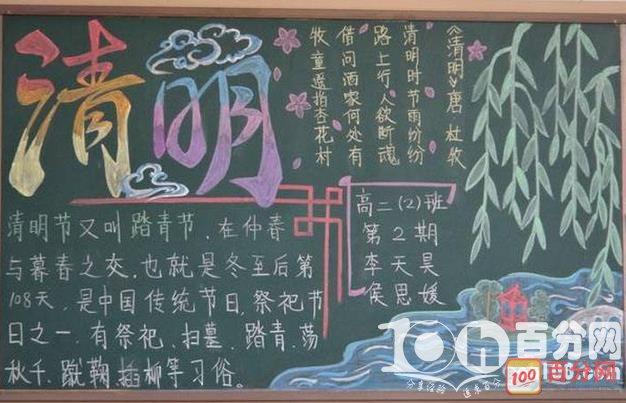 清明
《清明》唐 杜牧
清明时节雨纷纷
路上行人欲断魂
借问酒家何处有
牧童遥指杏花村
高二(2)班
第2期
李天昊
侯思媛
清明节又叫踏青节,在仲春
与暮春之交,也就是冬至后第
108天,是中国传统节日,祭祀节
日之一,有祭祀、扫墓、踏青、荡
秋千、蹴鞠、插柳等习俗。
100百分网
100
百分网